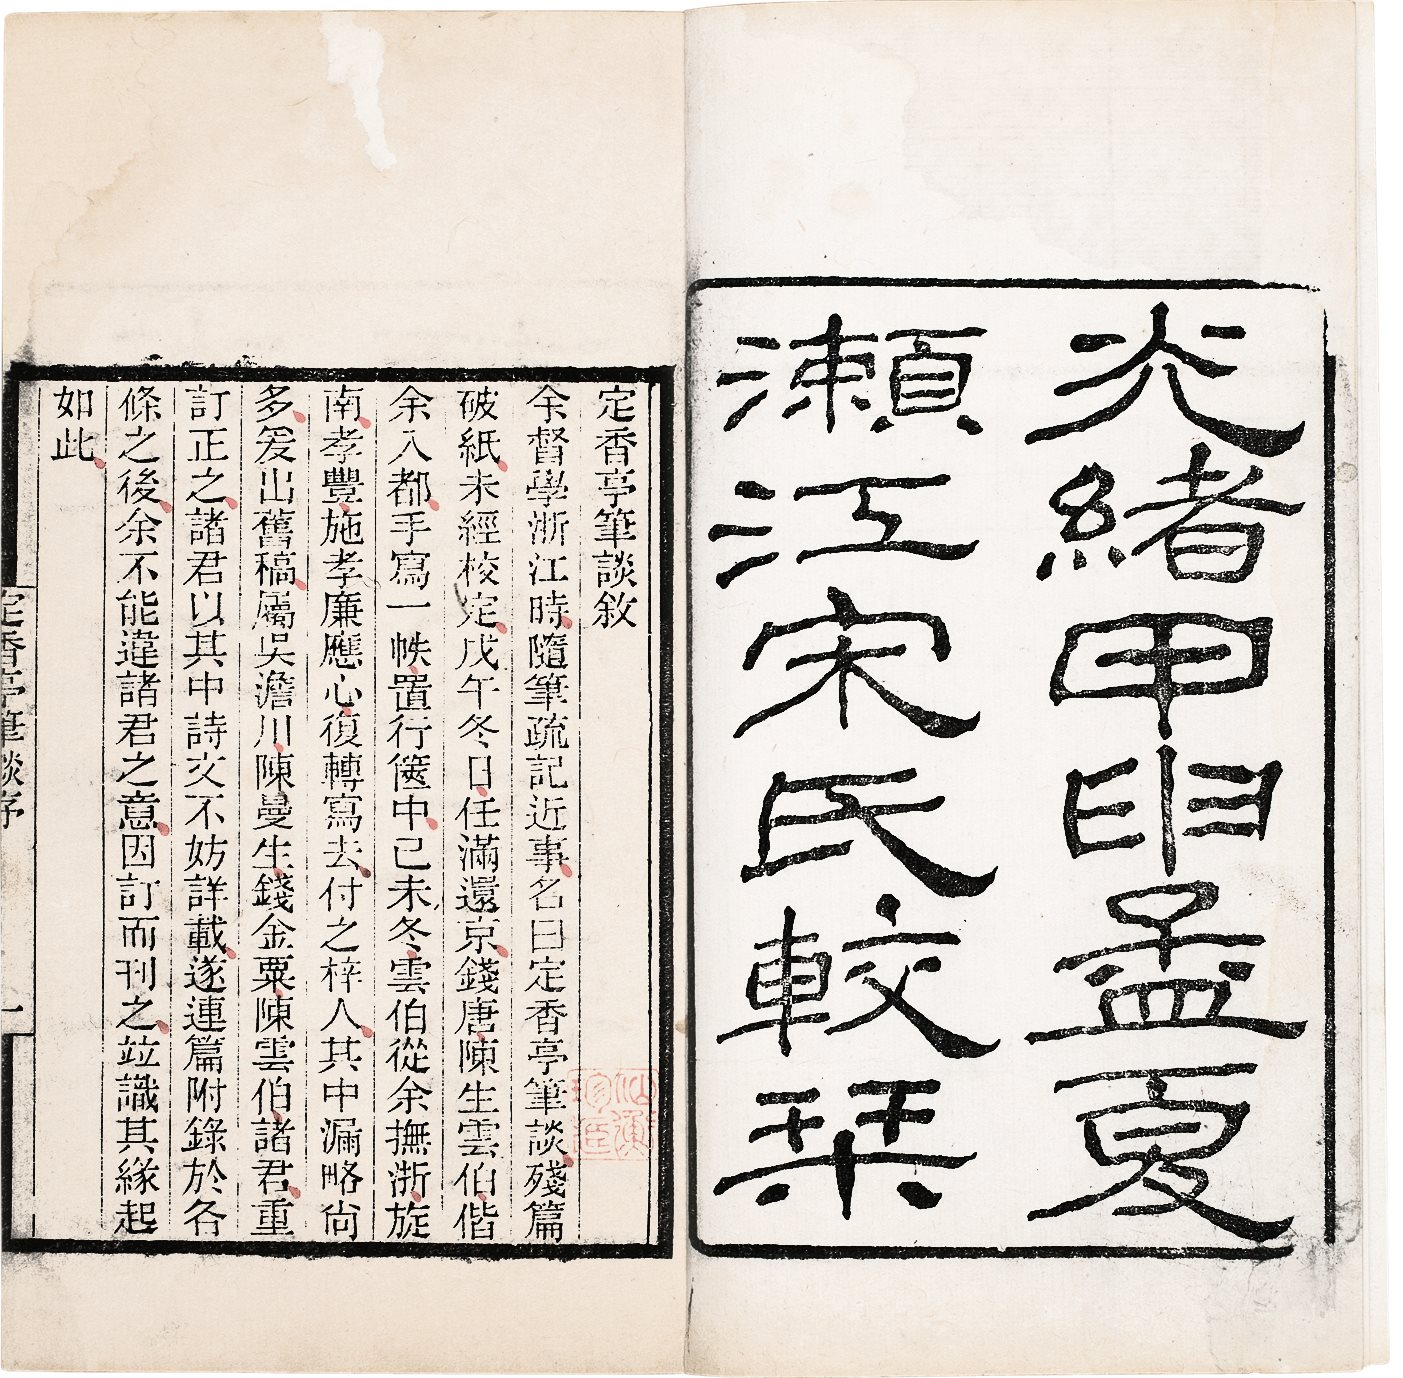 光緒甲申孟夏
瀨江宋氏較栞
定香亭筆談敘
余督學浙江時隨筆疏記近事名曰定香亭筆談殘篇
破紙未經校定戊午冬日任滿還京錢唐陳生雲伯偕
余入都手寫一帙置行篋中己未冬雲伯從余撫浙旋
南孝豐施孝廉應心復轉寫去付之梓人其中漏略尙
多爰出舊稿屬吳澹川陳曼生錢金粟陳雲伯諸君重
訂正之諸君以其中詩文不妨詳載遂連篇附錄於各
條之後余不能違諸君之意因訂而刊之竝識其緣起
如此
定香亭筆談序
一